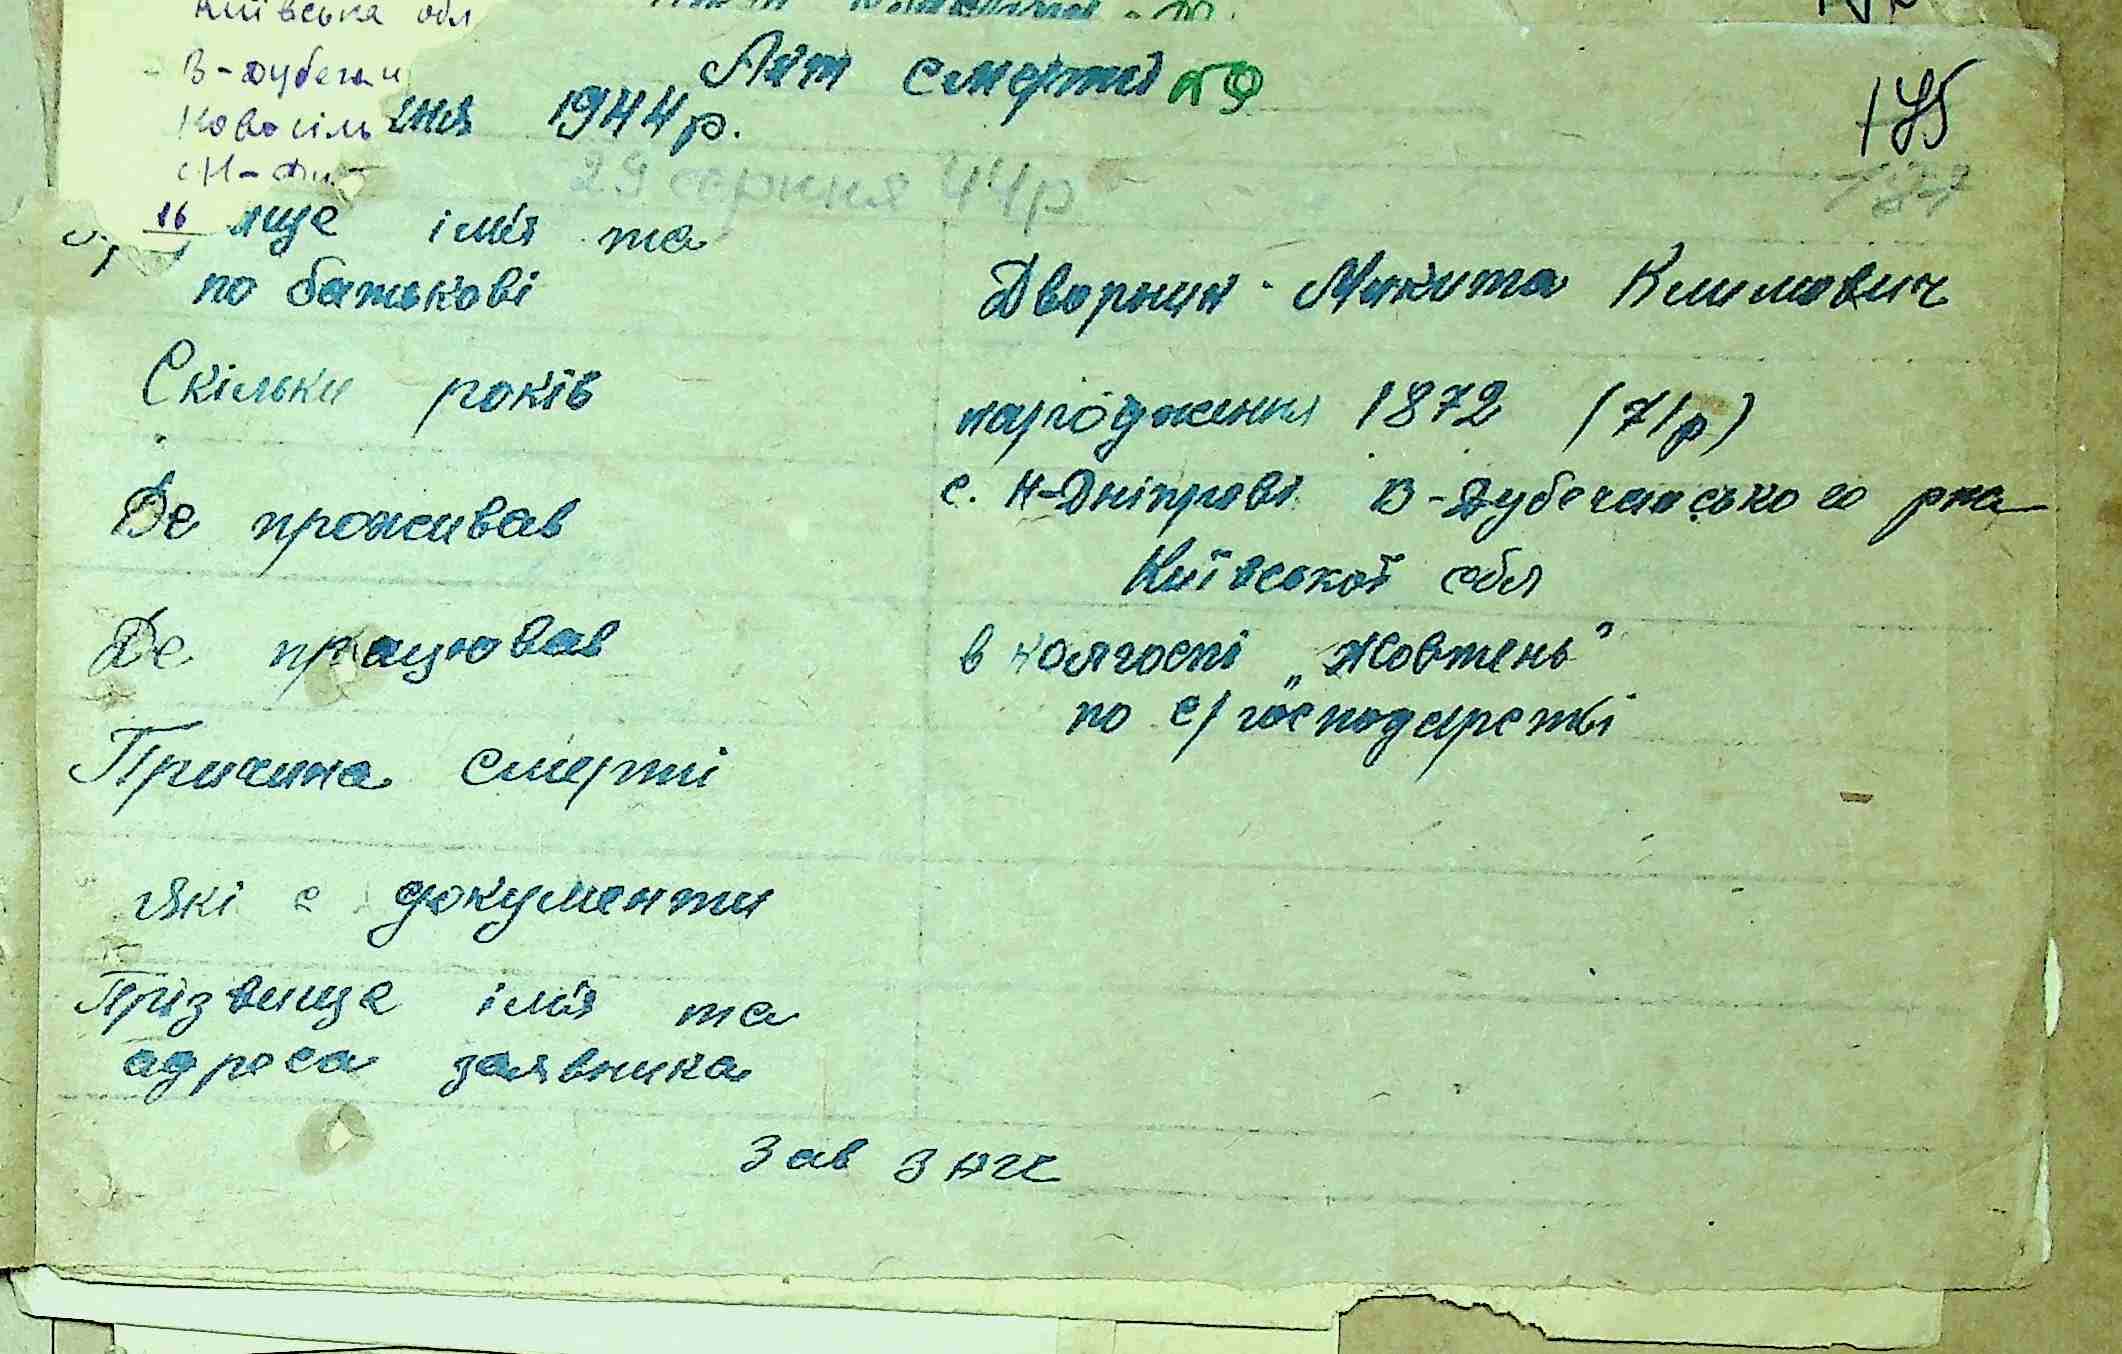 Київська обл
В-Дубечан
Новосіль
с Н-Дні
16
Акт смерті
ння 1944 р.
175
29 серпня 44р
ище імʼя та
по батькові
Дворник Микита Климович
Скільки років
народження 1872 (71р)
Де проживав
с. Н-Дніпрові В-Дубечанського рна
Київської обл
Де працював
в колгоспі „Жовтень"
по с/господарстві
Причина смерті
Які є документи
Прізвище імʼя та
адреса заявника
Зав ЗАГС